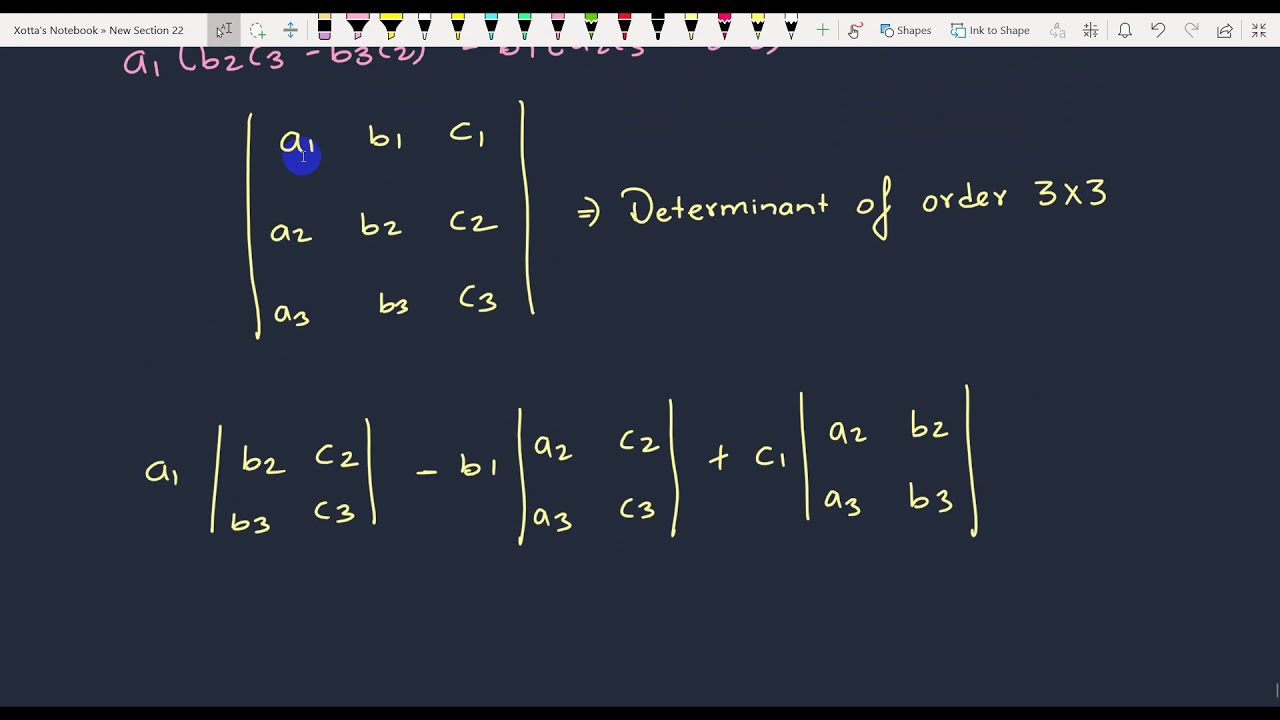 Xotta's Notebook » New Section 22
Shapes
Ink to Shape
a1 (b2c3 - b3c2) - b1 (a2c3
a1 b1 c1
a2 b2 c2
a3 b3 c3
⇒ Determinant of order 3x3
a1 | b2 c2 | - b1 | a2 c2 | + c1 | a2 b2 |
| b3 c3 | | a3 c3 | | a3 b3 |